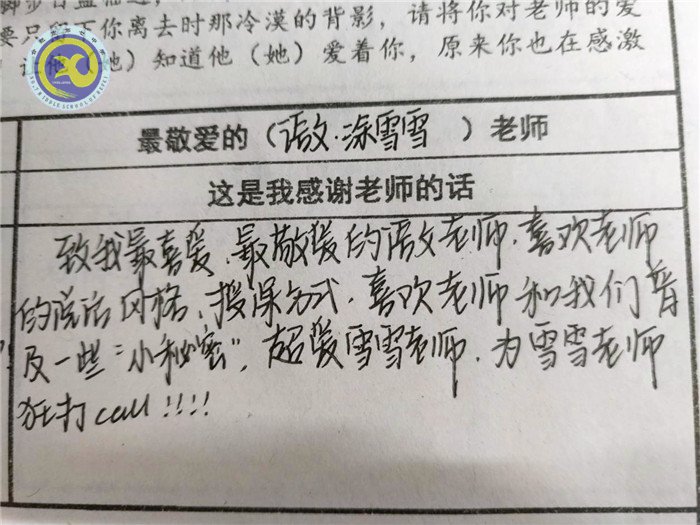 要只留下你离去时那冷漠的背影，请将你对老师的爱
让他（她）知道他（她）爱着你，原来你也在感激
NO.7 MIDDLE SCHOOL OF HEFEI
最敬爱的（语文·涂雪雪）老师
这是我感谢老师的话
致我最喜爱、最敬爱的语文老师，喜欢老师
的说话风格、授课方式，喜欢老师和我们普
及一些“小秘密”，超爱雪雪老师，为雪雪老师
狂打call!!!!